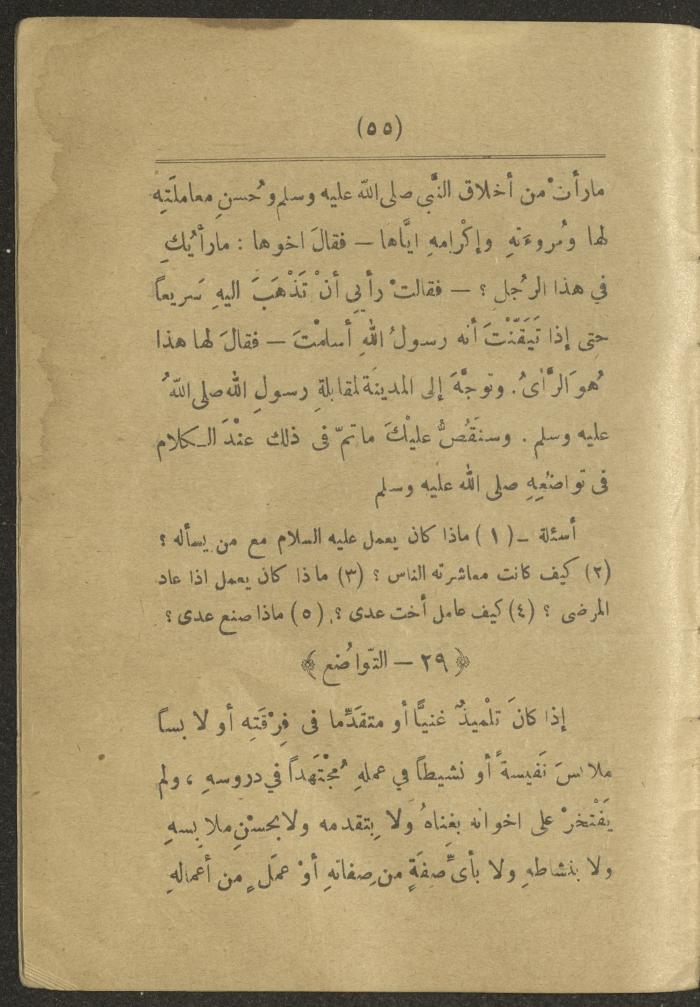 (٥٥)
مارأتْ من أخلاق النَّبي صلى الله عليه وسلم وحُسنِ معاملَتِهِ
لها ومُروءتهِ وإكْرامهِ ايَّاها — فقالَ اخوها : مارأيُكِ
في هذا الرجُلِ ؟ — فقالتْ رأيى أنْ تَذْهَبَ اليهِ سَريعاً
حتى إذا تَيَقَّنْتَ أنه رسولُ اللهِ أسلمْتَ — فقالَ لها هذا
هُوَ الرَّأىُ. وتوجَّهَ إلى المدينَة لمقابلةِ رسولِ الله صلى اللهُ
عليه وسلم . وسنَقُصُّ عليْكَ ماتمّ فى ذلك عنْدَ الـكلام
فى تواضُعِهِ صلى الله عليه وسلم
أسئلة ـ (١) ماذا كان يعمل عليه السلام مع من يسأله ؟
(٢) كيف كانت معاشرته الناس ؟ (٣) ماذا كان يعمل اذا عاد
المرضى ؟ (٤) كيف عامل أخت عدى ؟ (٥) ماذا صنع عدى ؟
﴿ ٢٩ — التّواضُع ﴾
إذا كانَ تلْميذٌ غنيًّا أو متقدِّما فى فِرْقَتِه أو لابساً
ملابسَ نَفيسةً أو نشيطاً في عملهِ مُجْتَهداً في دروسهِ ، ولم
يَفْتخرْ على اخوانه بغِناهُ ولا بِتقدمه ولا بحسْنِ ملابِسهِ
ولا بنشاطهِ ولا بأىِّ صِفَةٍ من صِفاتهِ أوْ عمَلٍ من أعمالهِ